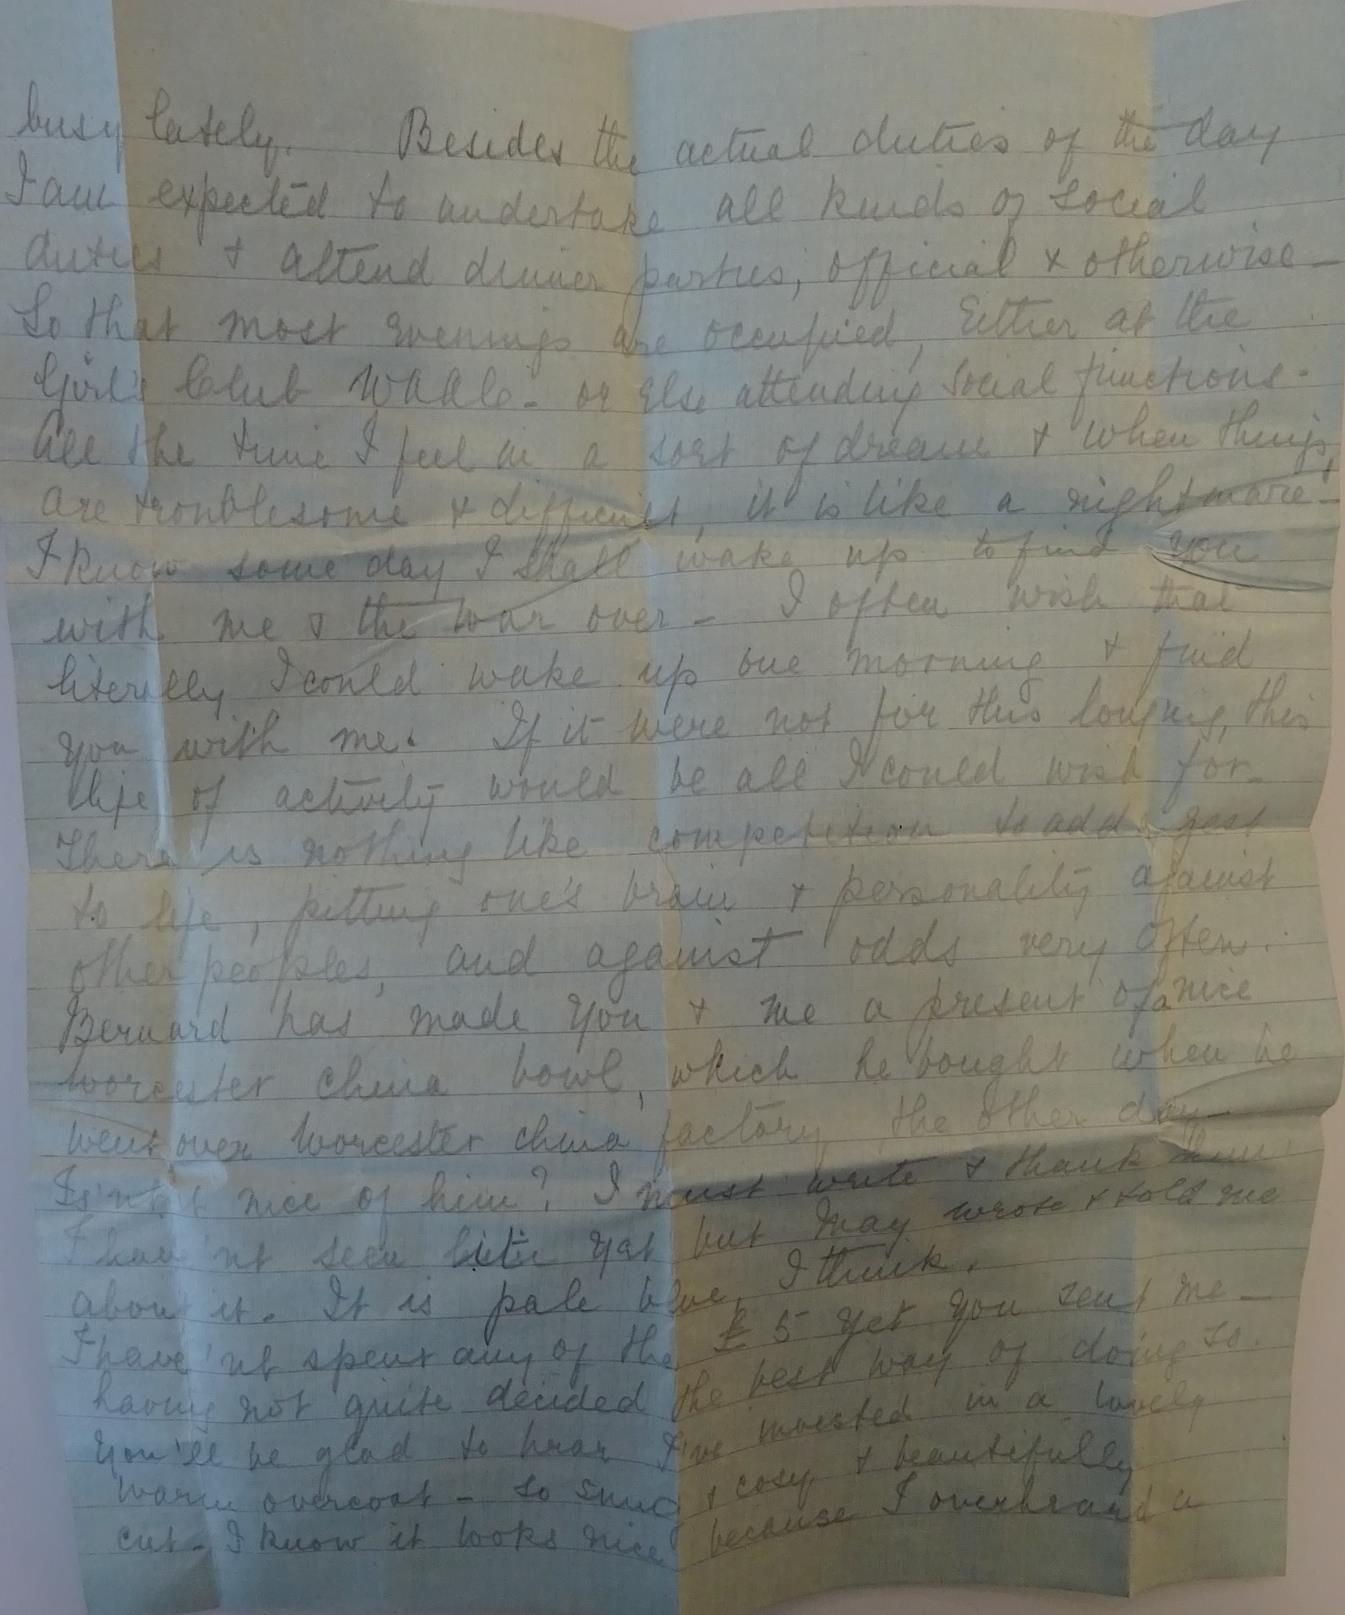 busy lately. Besides the actual duties of the day
I am expected to undertake all kinds of social
duties & attend dinner parties, official & otherwise –
So that most evenings are occupied, Either at the
Girl's Club or else attending social functions.
All the time I feel in a sort of dream & when things
are troublesome & difficult, it is like a nightmare –
I know some day I shall wake up to find you
with me & the war over – I often wish that
literally I could wake up one morning & find
you with me. If it were not for this longing, this
life of activity would be all I could wish for –
There is nothing like competition to add zest
to life, pitting one's brain & personality against
other peoples, and against odds very often.
Bernard has made you & me a present of a nice
Worcester china bowl, which he bought when he
went over Worcester china factory the other day –
Is'nt it nice of him? I must write & thank him
I have'nt seen it yet but May wrote & told me
about it. It is pale blue, I think.
I have'nt spent any of the £5 yet you sent me –
having not quite decided the best way of doing so.
You'll be glad to hear I've invested in a lovely
warm overcoat – so snug & cosy & beautifully
cut – I know it looks nice because I overheard a